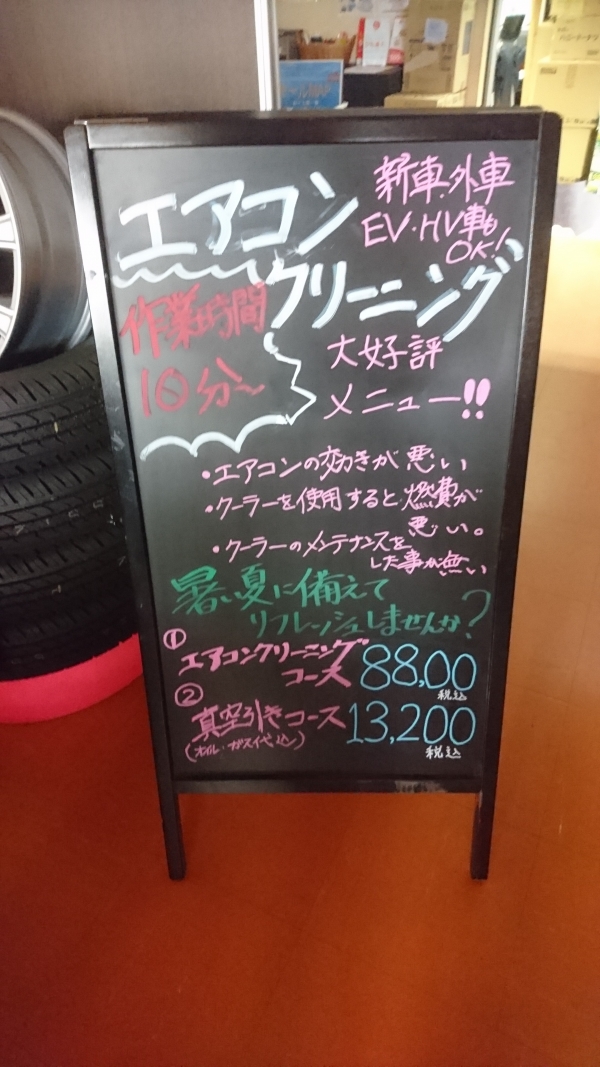 エアコン
クリーニング
新車・外車
EV・HV車も
OK!
作業時間
10分〜
大好評
メニュー!!
・エアコンの効きが悪い
・クーラーを使用すると燃費が
悪い。
・クーラーのメンテナンスを
した事が無い
暑い夏に備えて
リフレッシュしませんか?
①
エアコンクリーニング
コース 88,00
税込
②
真空引きコース 13,200
(オイル・ガス代込) 税込